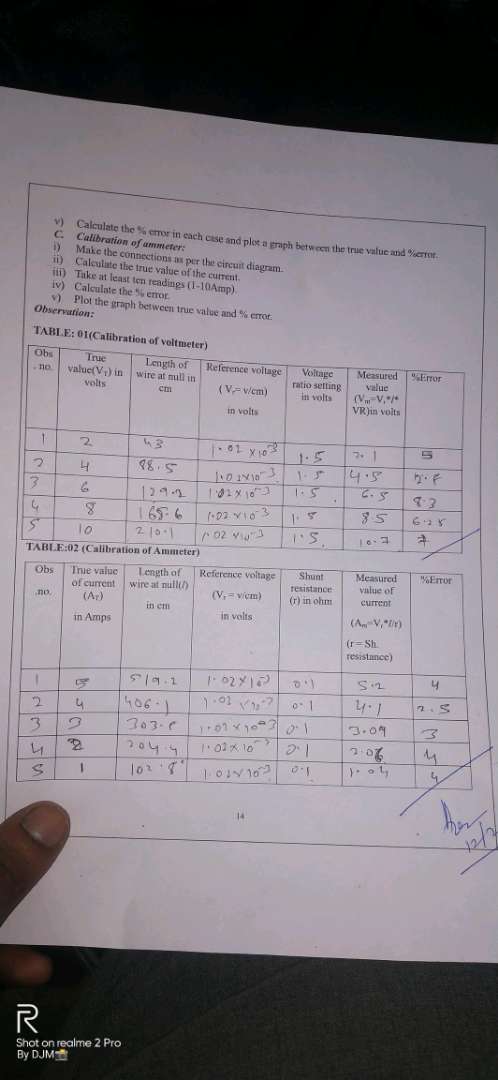 v) Calculate the % error in each case and plot a graph between the true value and %error.
C. Calibration of ammeter:
i) Make the connections as per the circuit diagram.
ii) Calculate the true value of the current.
iii) Take at least ten readings (1-10Amp).
iv) Calculate the % error.
v) Plot the graph between true value and % error.
Observation:
TABLE: 01(Calibration of voltmeter)
Obs . no. True value(VT) in volts Length of wire at null in cm Reference voltage ( Vr= v/cm) in volts Voltage ratio setting in volts Measured value (Vm=Vr*l* VR)in volts %Error
1 2 43 1.02 x10-3 1.5 2.1 5
2 4 88.5 1.02x10-3 1.5 4.5
3 6 129.2 1.02x10-3 1.5 6.5 8.3
4 8 168.6 1.02 x10-3 1.5 8.5 6.25
5 10 210.1 1.02 x10-3 1.5 10.7 7
TABLE:02 (Calibration of Ammeter)
Obs .no. True value of current (AT) in Amps Length of wire at null(l) in cm Reference voltage (Vr = v/cm) in volts Shunt resistance (r) in ohm Measured value of current (Am=Vr*l/r) (r = Sh. resistance) %Error
1 5 519.2 1.02x10-3 0.1 5.2 4
2 4 406.1 1.02 x10-3 0.1 4.1 2.5
3 3 1.02 x10-3 0.1 3.09 3
4 2 204.4 1.02x10-3 0.1 2.08 4
5 1 102.8 1.02x10-3 0.1 1.04 4
14
R
Shot on realme 2 Pro
By DJM📸